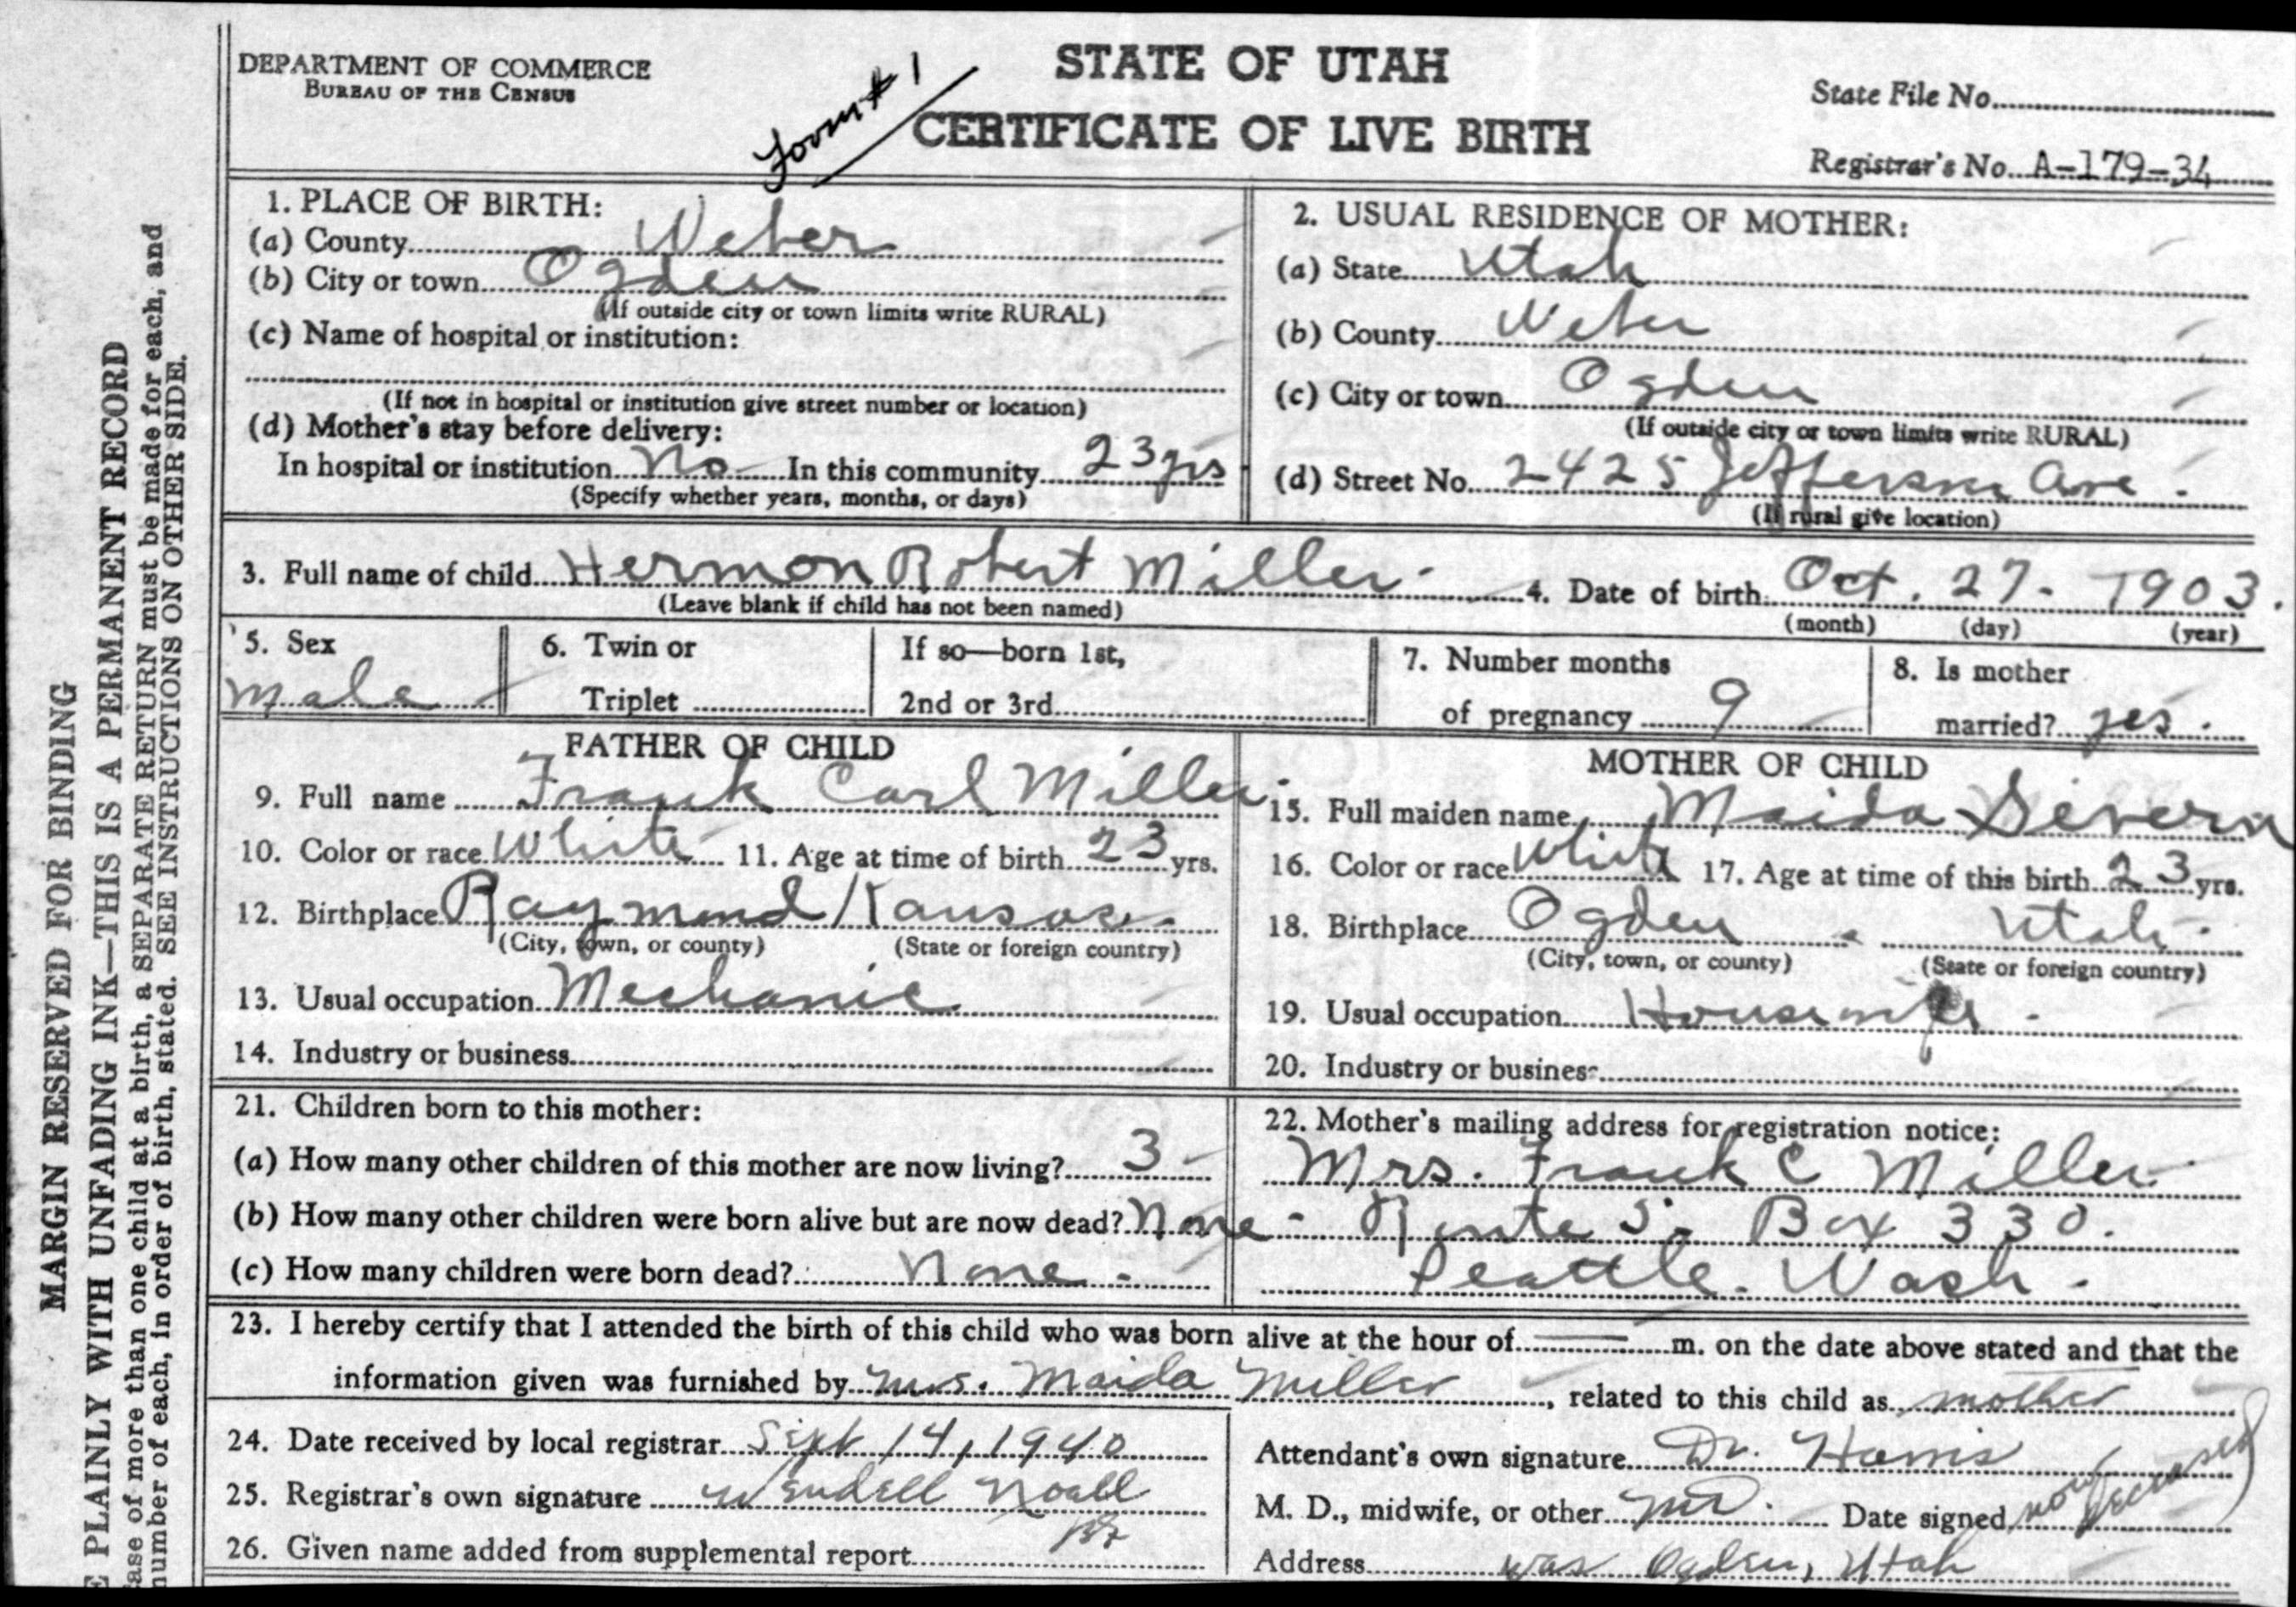 DEPARTMENT OF COMMERCE
BUREAU OF THE CENSUS
Form # 1
STATE OF UTAH
CERTIFICATE OF LIVE BIRTH
State File No.
Registrar's No. A-179-34
1. PLACE OF BIRTH:
(a) County Weber
(b) City or town Ogden
(If outside city or town limits write RURAL)
(c) Name of hospital or institution:
(If not in hospital or institution give street number or location)
(d) Mother's stay before delivery:
In hospital or institution No In this community 23 yrs
(Specify whether years, months, or days)
2. USUAL RESIDENCE OF MOTHER:
(a) State Utah
(b) County Weber
(c) City or town Ogden
(If outside city or town limits write RURAL)
(d) Street No. 2425 Jefferson Ave.
(If rural give location)
3. Full name of child Hermon Robert Miller
(Leave blank if child has not been named)
4. Date of birth Oct. 27 - 1903.
(month) (day) (year)
5. Sex
male
6. Twin or
Triplet
If so—born 1st,
2nd or 3rd
7. Number months
of pregnancy 9
8. Is mother
married? yes.
FATHER OF CHILD
9. Full name Frank Carl Miller
10. Color or race White 11. Age at time of birth 23 yrs.
12. Birthplace Raymond Kansas
(City, town, or county) (State or foreign country)
13. Usual occupation Mechanic
14. Industry or business
MOTHER OF CHILD
15. Full maiden name Maida Severn
16. Color or race White 17. Age at time of this birth 23 yrs.
18. Birthplace Ogden Utah
(City, town, or county) (State or foreign country)
19. Usual occupation Housewife
20. Industry or business
21. Children born to this mother:
(a) How many other children of this mother are now living? 3
(b) How many other children were born alive but are now dead? None
(c) How many children were born dead? None
22. Mother's mailing address for registration notice:
Mrs. Frank C Miller
Route 5. Box 330.
Seattle. Wash.
23. I hereby certify that I attended the birth of this child who was born alive at the hour of m. on the date above stated and that the
information given was furnished by Mrs. Maida Miller, related to this child as mother
24. Date received by local registrar Sept 14, 1940
25. Registrar's own signature Wendell Noall
26. Given name added from supplemental report
Attendant's own signature Dr. Harris
M. D., midwife, or other MD. Date signed now deceased
Address was Ogden, Utah
MARGIN RESERVED FOR BINDING
E PLAINLY WITH UNFADING INK—THIS IS A PERMANENT RECORD
ase of more than one child at a birth, a SEPARATE RETURN must be made for each, and
number of each, in order of birth, stated. SEE INSTRUCTIONS ON OTHER SIDE.